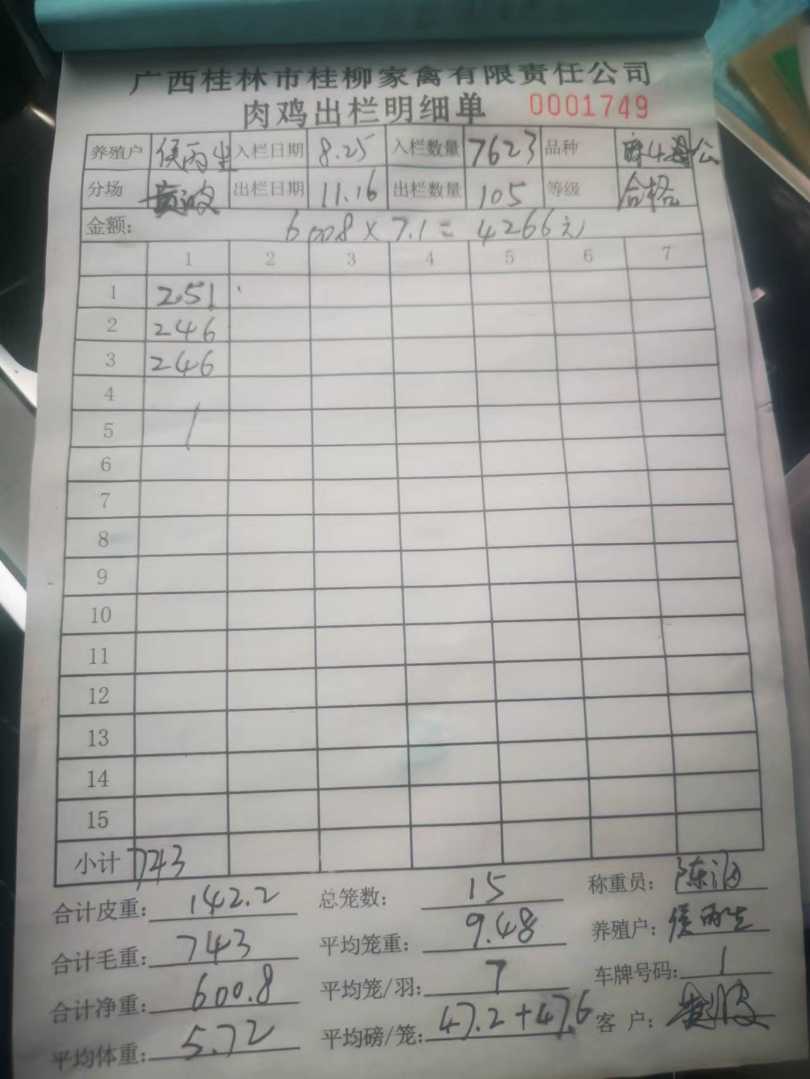 广西桂林市桂柳家禽有限责任公司
肉鸡出栏明细单 0001749
养殖户 侯丙生 入栏日期 8.25 入栏数量 7623 品种 公
分场 黄波 出栏日期 11.16 出栏数量 105 等级 合格
金额: 600.8 x 7.1 = 4266元
1 2 3 4 5 6 7
1 2.51
2 246
3 246
4
5
6
7
8
9
10
11
12
13
14
15
小计 743
合计皮重: 142.2 总笼数: 15 称重员: 陈
合计毛重: 743 平均笼重: 9.48 养殖户: 侯丙生
合计净重: 600.8 平均笼/羽: 7 车牌号码: 1
平均体重: 5.72 平均磅/笼: 47.2+47.6 客 户: 黄波